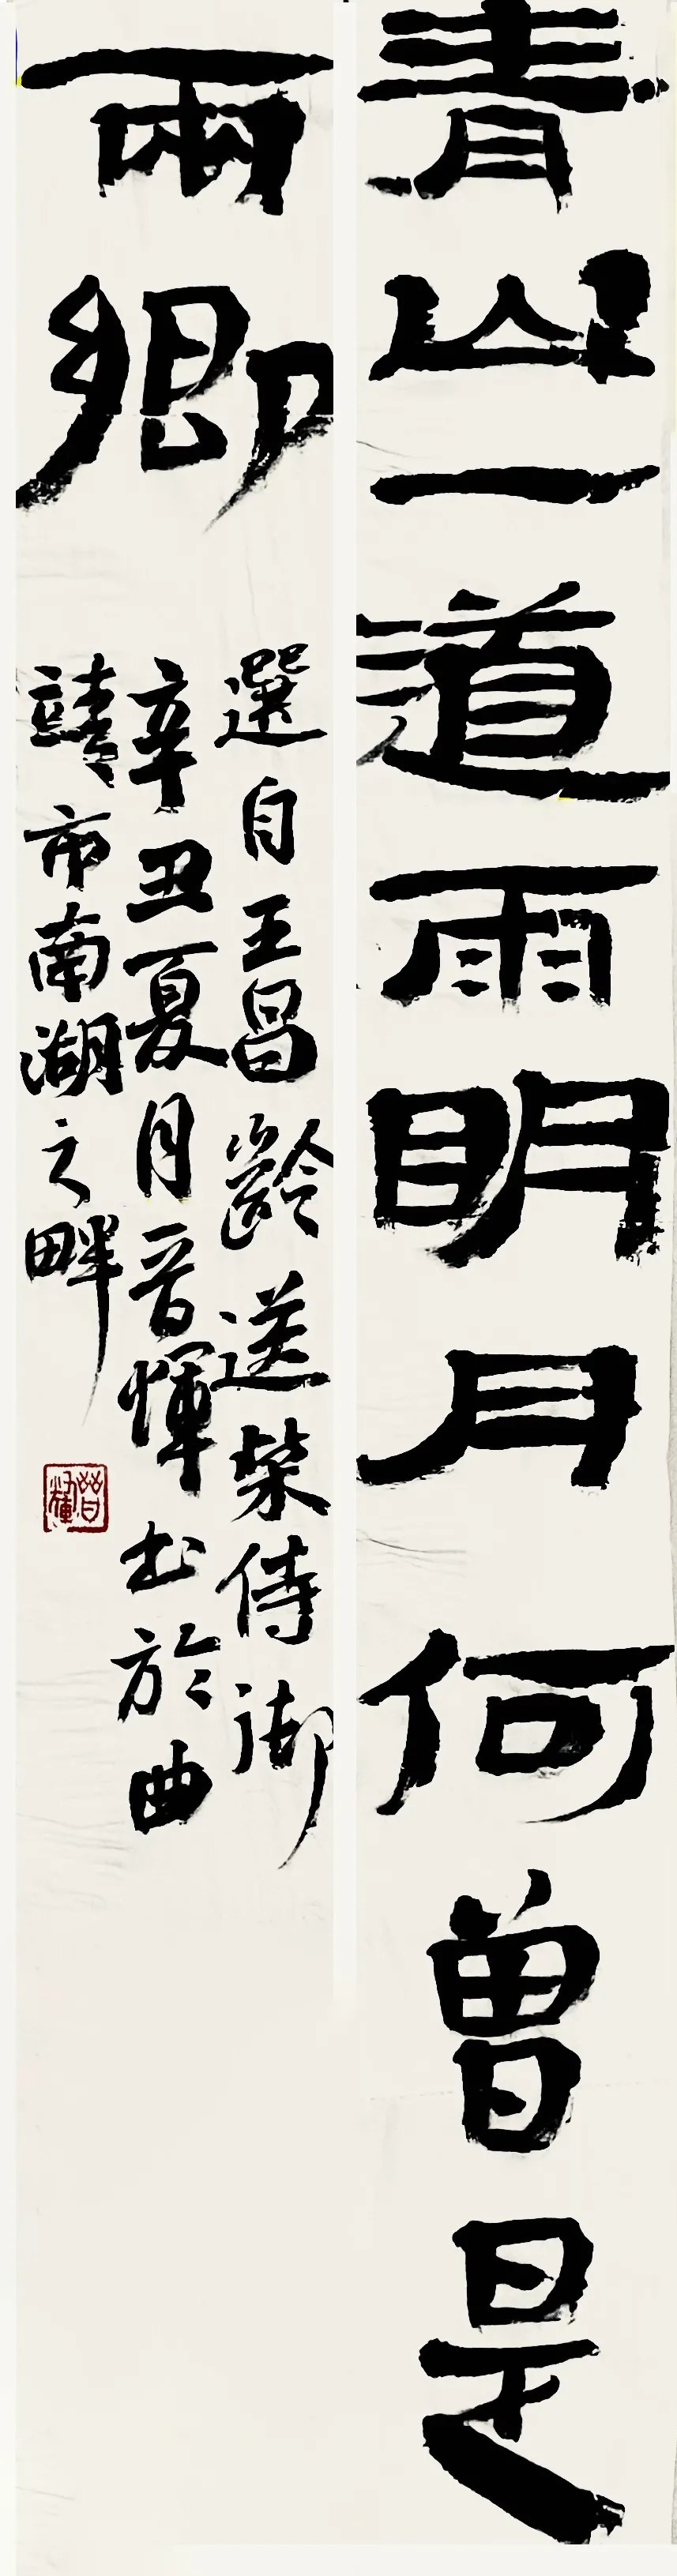 青山一道雨明月何曾是
兩鄉
選自王昌齡送柴侍御
辛丑夏月晉煇书於曲
靖市南湖之畔
晉輝